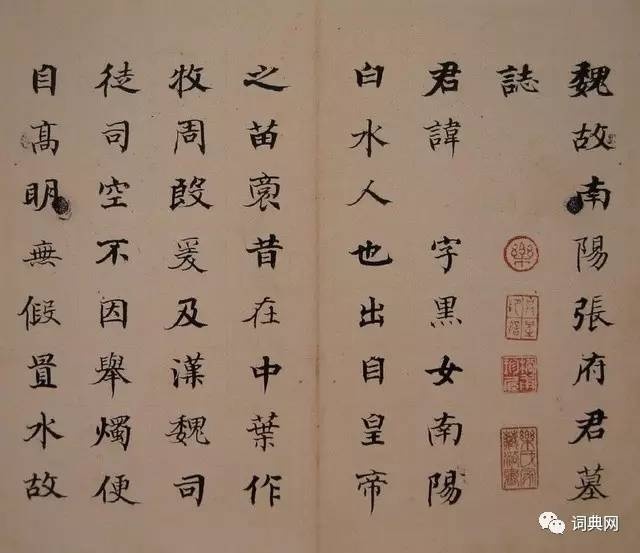 魏故南陽張府君墓
誌
君諱 字黑女南陽
白水人也出自皇帝
之苗裔昔在中葉作
牧周殷爰及漢魏司
徒司空不因舉燭便
自髙明無假置水故
词典网